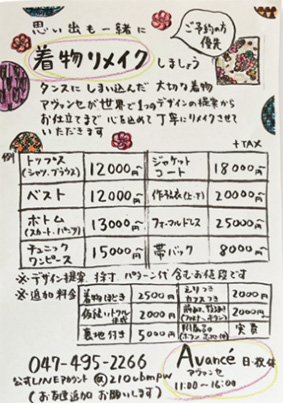 思い出も一緒に
ご予約の方
優先
着物リメイク しましょう
タンスにしまい込んだ 大切な着物
アヴァンセが世界で1つのデザインの提案から
お仕立てまで 心を込めて 丁寧にリメイクさせて
いただきます
+TAX
例
トップス(シャツ、ブラウス) 12000円〜
ジャケット コート 18000円〜
ベスト 12000円〜
20000円〜
ボトム(スカート、パンツ) 13000円〜
フォーマルドレス 25000円〜
チュニック ワンピース 15000円〜
帯バッグ 8000円〜
※デザイン提案、採寸、パターン代含むお値段です
※追加料金
着物ほどき 2500円〜
えりつき カフスつき 2000円〜
仮縫い 2000円〜
2000円〜
裏地付き 5000円〜
実費
047-495-2266
公式LINEアカウント @210vbmpw
(お友達追加 お願いします)
Avancé 日・祝休
アヴァンセ
11:00〜16:00